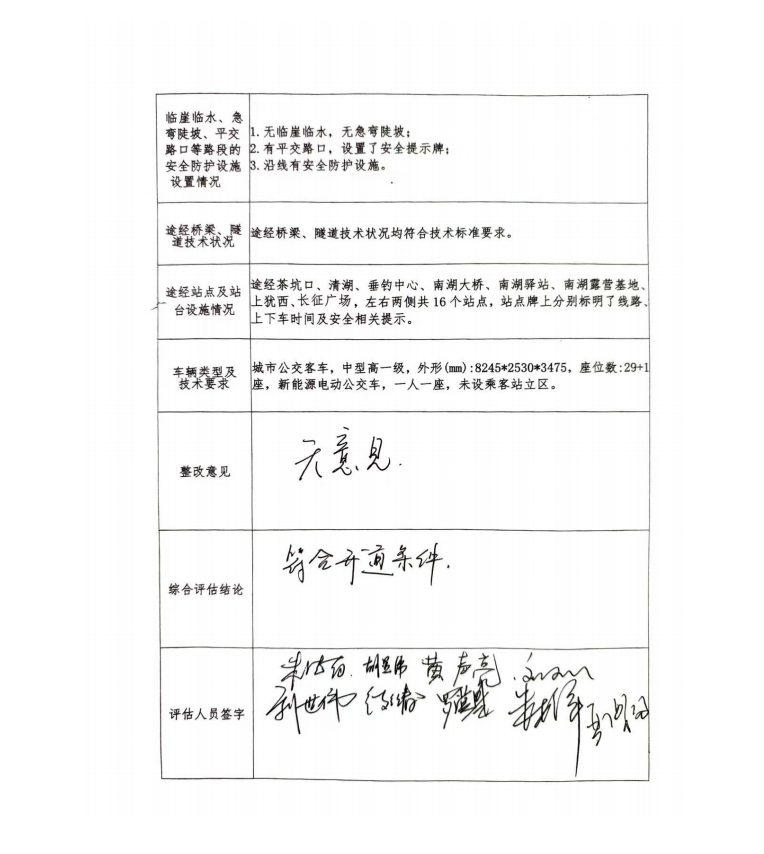 临崖临水、急
弯陡坡、平交
路口等路段的
安全防护设施
设置情况
1.无临崖临水，无急弯陡坡；
2.有平交路口，设置了安全提示牌；
3.沿线有安全防护设施。
途经桥梁、隧
道技术状况
途经桥梁、隧道技术状况均符合技术标准要求。
途经站点及站
台设施情况
途经茶坑口、清湖、垂钓中心、南湖大桥、南湖驿站、南湖露营基地、
上犹西、长征广场，左右两侧共16个站点，站点牌上分别标明了线路、
上下车时间及安全相关提示。
车辆类型及
技术要求
城市公交客车，中型高一级，外形(mm):8245*2530*3475，座位数:29+1
座，新能源电动公交车，一人一座，未设乘客站立区。
整改意见
无意见.
综合评估结论
符合开通条件.
评估人员签字